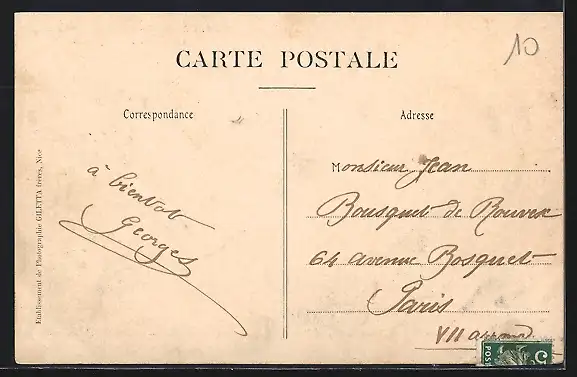 10
CARTE POSTALE
Correspondance
Adresse
à bientot
Georges
Monsieur Jean
Bousquet de Rouvex
64 avenue Bosquet
Paris
VII arrond.
Etablissement de Photographie GILETTA frères, Nice
5
POS